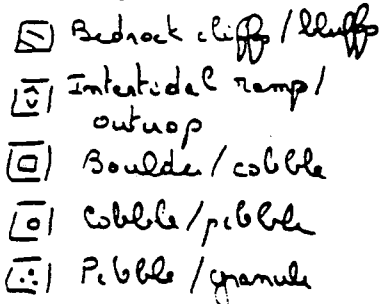 Bedrock cliffs/bluffs
Intertidal ramp/
outcrop
Boulder/cobble
Cobble/pebble
Pebble/granule